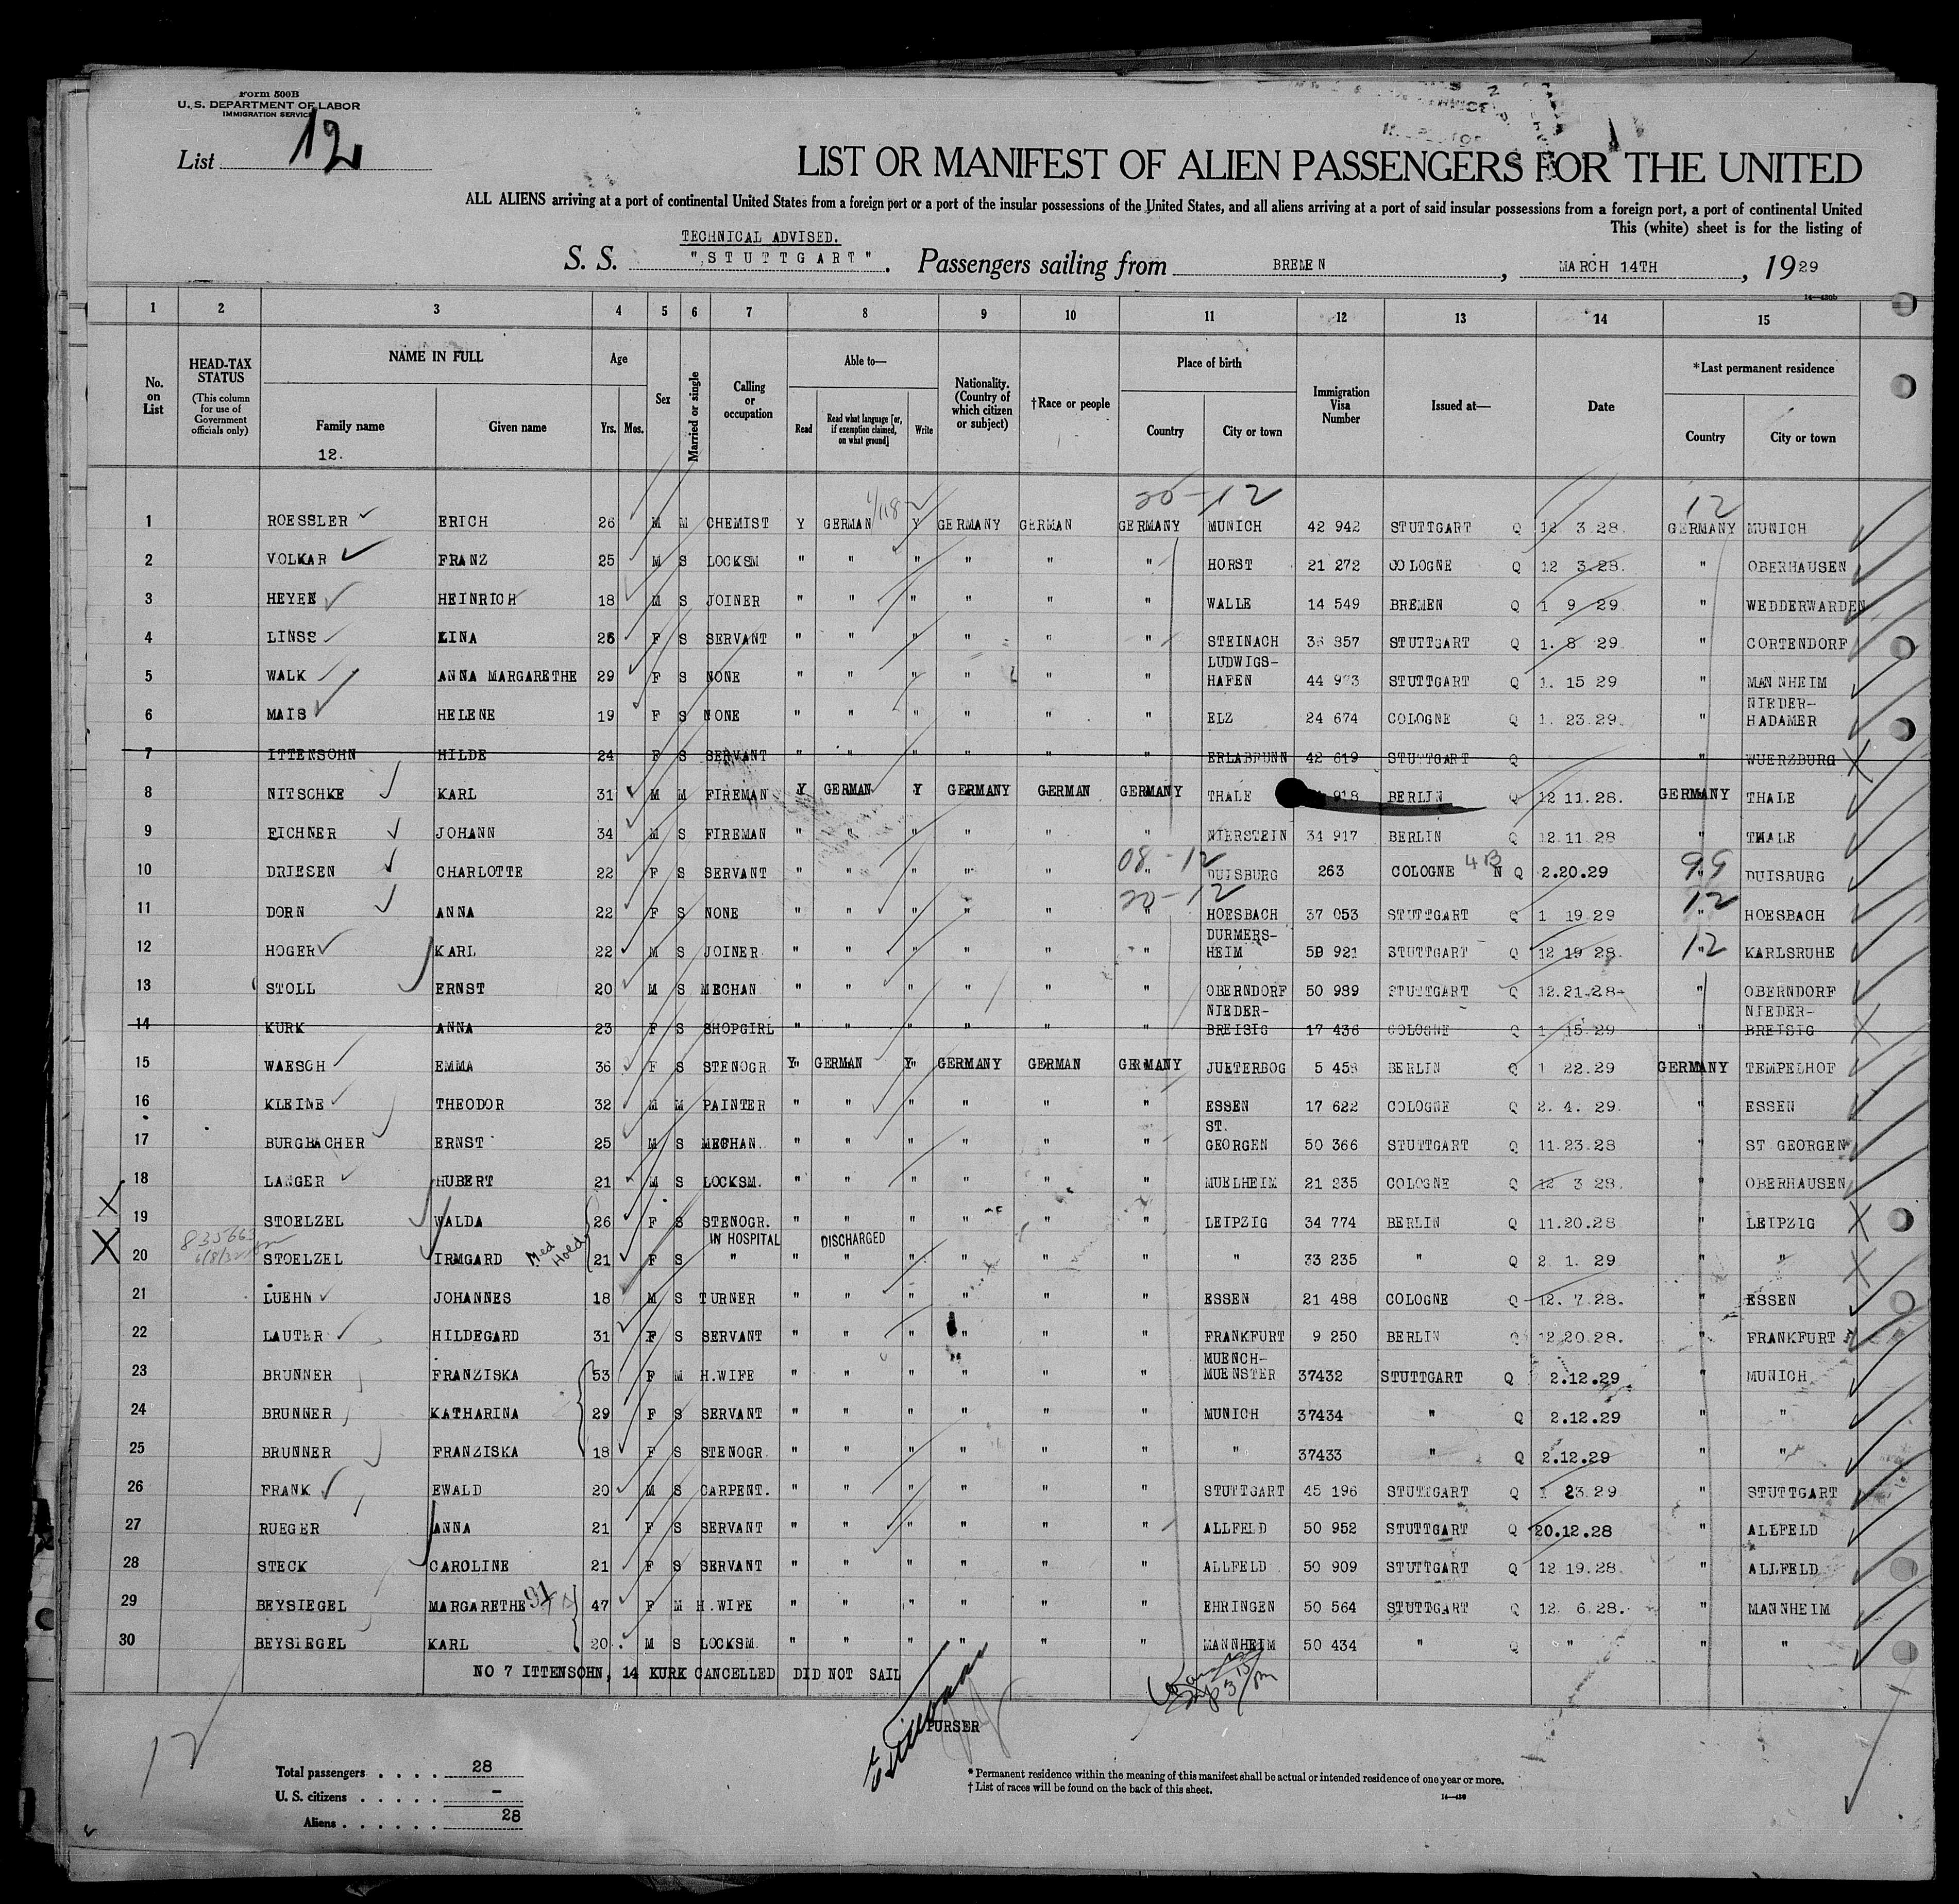 Form 500B
U. S. DEPARTMENT OF LABOR
IMMIGRATION SERVICE
List 12
LIST OR MANIFEST OF ALIEN PASSENGERS FOR THE UNITED
ALL ALIENS arriving at a port of continental United States from a foreign port or a port of the insular possessions of the United States, and all aliens arriving at a port of said insular possessions from a foreign port, a port of continental United
This (white) sheet is for the listing of
TECHNICAL ADVISED.
S. S. "STUTTGART". Passengers sailing from BREMEN, MARCH 14TH, 1929
14—430b
1 2 3 4 5 6 7 8 9 10 11 12 13 14 15
No. on List
HEAD-TAX STATUS (This column for use of Government officials only)
NAME IN FULL
Family name
12.
Given name
Age
Yrs. Mos.
Sex
Married or single
Calling or occupation
Able to—
Read
Read what language [or, if exemption claimed, on what ground]
Write
Nationality. (Country of which citizen or subject)
†Race or people
Place of birth
Country
City or town
Immigration Visa Number
Issued at—
Date
*Last permanent residence
Country
City or town
20-12 12
1 ROESSLER ERICH 26 M M CHEMIST Y GERMAN Y GERMANY GERMAN GERMANY MUNICH 42 942 STUTTGART Q 12 3.28. GERMANY MUNICH
2 VOLKAR FRANZ 25 M S LOCKSM " " " " " " HORST 21 272 COLOGNE Q 12 3.28. " OBERHAUSEN
3 HEYEN HEINRICH 18 M S JOINER " " " " " " WALLE 14 549 BREMEN Q 1 9 29. " WEDDERWARDEN
4 LINSE LINA 26 F S SERVANT " " " " " " STEINACH 357 STUTTGART Q 1. 8 29 " CORTENDORF
5 WALK ANNA MARGARETHE 29 F S NONE " " " " " " LUDWIGS-HAFEN 44 STUTTGART Q 1. 15 29 " MANNHEIM
6 MAIS HELENE 19 F S NONE " " " " " " ELZ 24 674 COLOGNE Q 1. 23.29. " NIEDER-HADAMER
7 ITTENSOHN HILDE 24 F S SERVANT " " " " " " ERLABRUNN 42 619 STUTTGART Q " WUERZBURG
8 NITSCHKE KARL 31 M M FIREMAN Y GERMAN Y GERMANY GERMAN GERMANY THALE 918 BERLIN Q 12 11.28. GERMANY THALE
9 EICHNER JOHANN 34 M S FIREMAN " " " " " " NIERSTEIN 34 917 BERLIN Q 12.11 28 " THALE
08-12 4B 99
10 DRIESEN CHARLOTTE 22 F S SERVANT " " " " " " DUISBURG 263 COLOGNE N Q 2.20.29 " DUISBURG
20-12 12
11 DORN ANNA 22 F S NONE " " " " " " HOESBACH 37 053 STUTTGART Q 1 19.29 " HOESBACH
12 HOGER KARL 22 M S JOINER " " " " " " DURMERS-HEIM 50 921 STUTTGART Q 12 19 28. 12 " KARLSRUHE
13 STOLL ERNST 20 M S MECHAN " " " " " " OBERNDORF 50 989 STUTTGART Q 12.21.28 " OBERNDORF
14 KURK ANNA 23 F S SHOPGIRL " " " " " " NIEDER-BREISIG 17 436 COLOGNE Q 1 15.29 " NIEDER-BREISIG
15 WAESCH EMMA 36 F S STENOGR. Y GERMAN Y GERMANY GERMAN GERMANY JUETERBOG 5 458 BERLIN Q 1 22.29 GERMANY TEMPELHOF
16 KLEINE THEODOR 32 M M PAINTER " " " " " " ESSEN 17 622 COLOGNE Q 2. 4. 29. " ESSEN
17 BURGBACHER ERNST 25 M S MECHAN. " " " " " " ST. GEORGEN 50 366 STUTTGART Q 11.23.28 " ST GEORGEN
18 LANGER HUBERT 21 M S LOCKSM. " " " " " " MUELHEIM 21 235 COLOGNE Q 12 3 28. " OBERHAUSEN
19 STOELZEL WALDA 26 F S STENOGR. " " " " " " LEIPZIG 34 774 BERLIN Q 11.20.28 " LEIPZIG
IN HOSPITAL DISCHARGED
20 STOELZEL IRMGARD Med Hold 21 F S " " " " " " " " 33 235 " Q 2. 1. 29 " "
21 LUEHN JOHANNES 18 M S TURNER " " " " " " ESSEN 21 488 COLOGNE Q 12. 7.28. " ESSEN
22 LAUTER HILDEGARD 31 F S SERVANT " " " " " " FRANKFURT 9 250 BERLIN Q 12.20.28. " FRANKFURT
23 BRUNNER FRANZISKA 53 F M H.WIFE " " " " " " MUENCH-MUENSTER 37432 STUTTGART Q 2.12.29 " MUNICH
24 BRUNNER KATHARINA 29 F S SERVANT " " " " " " MUNICH 37434 " Q 2.12.29 " "
25 BRUNNER FRANZISKA 18 F S STENOGR. " " " " " " " 37433 " Q 2.12.29 " "
26 FRANK EWALD 20 M S CARPENT. " " " " " " STUTTGART 45 196 STUTTGART Q 1 23.29 " STUTTGART
27 RUEGER ANNA 21 F S SERVANT " " " " " " ALLFELD 50 952 STUTTGART Q 20.12.28 " ALLFELD
28 STECK CAROLINE 21 F S SERVANT " " " " " " ALLFELD 50 909 STUTTGART Q 12.19.28. " ALLFELD
29 BEYSIEGEL MARGARETHE 47 F M H.WIFE " " " " " " EHRINGEN 50 564 STUTTGART Q 12. 6.28. " MANNHEIM
30 BEYSIEGEL KARL 20 M S LOCKSM. " " " " " " MANNHEIM 50 434 " Q " " "
NO 7 ITTENSOHN, 14 KURK CANCELLED DID NOT SAIL
PURSER
12
Total passengers . . . . 28
U. S. citizens . . . . . –
Aliens . . . . . . 28
* Permanent residence within the meaning of this manifest shall be actual or intended residence of one year or more.
† List of races will be found on the back of this sheet.
14—430